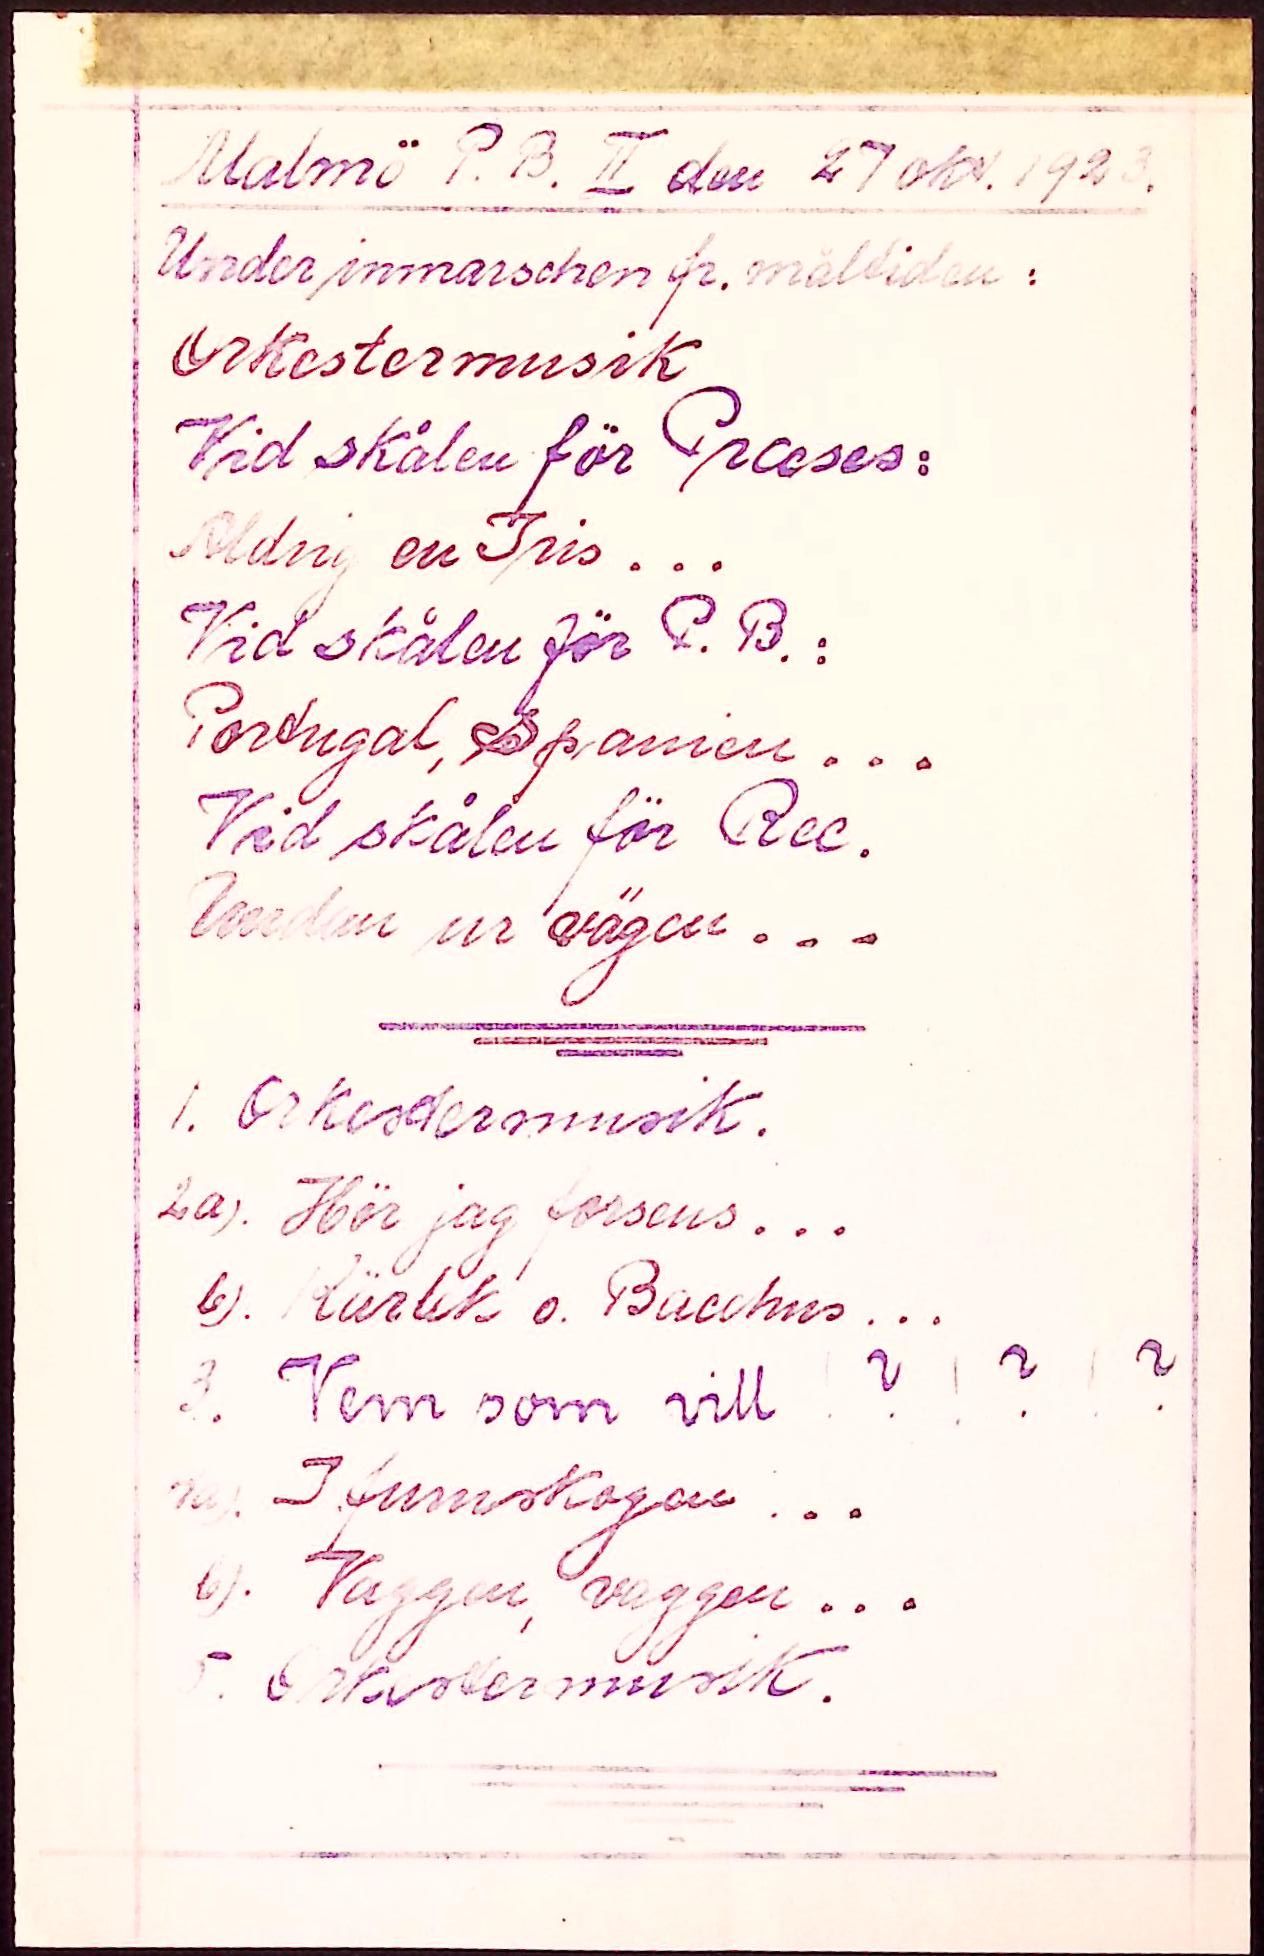 Malmö P. B. II den 27 okt. 1923.
Under inmarschen fr. måltiden :
Orkestermusik
Vid skålen för Præses :
Aldrig en Iris . . .
Vid skålen för P. B. :
Portugal, Spanien . . .
Vid skålen för Rec.
Undan ur vägen . . .
1. Orkestermusik.
2a). Hör jag forsens . . .
b). Kärlek o. Bacchus . . .
3. Vem som vill ! ? ! ? ! ?
4a). I furuskogen . . .
b). Vaggen, vaggen . . .
5. Orkestermusik.